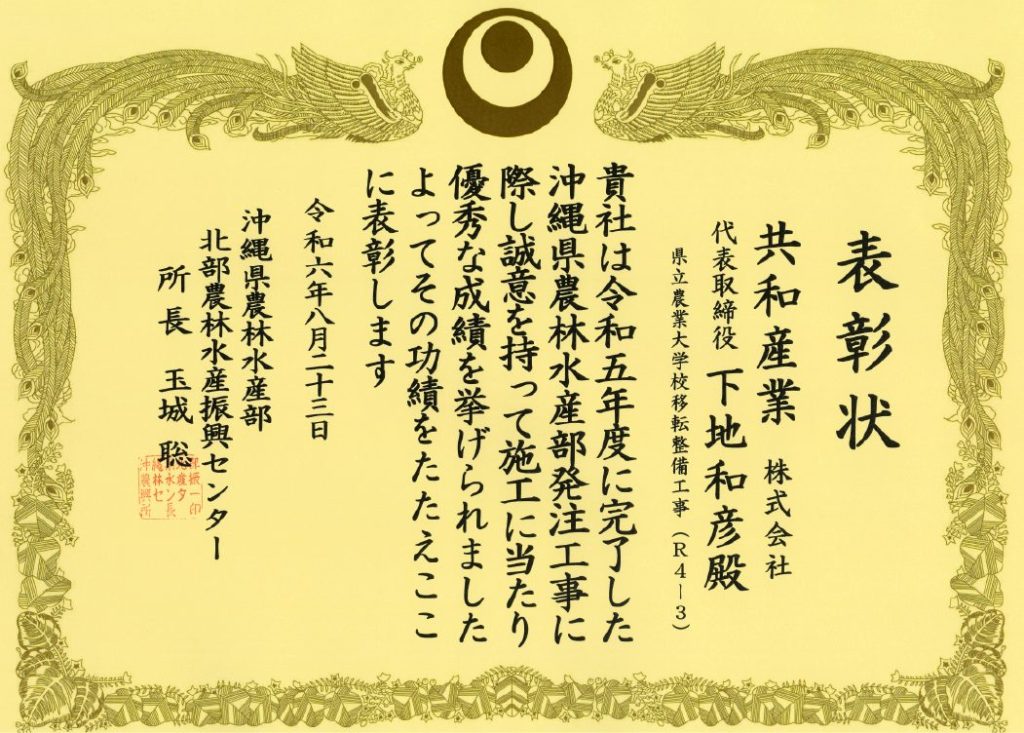 表彰状
共和産業 株式会社
代表取締役 下地和彦殿
県立農業大学校移転整備工事(R4-3)
貴社は令和五年度に完了した
沖縄県農林水産部発注工事に
際し誠意を持って施工に当たり
優秀な成績を挙げられました
よってその功績をたたえここ
に表彰します
令和六年八月二十三日
沖縄県農林水産部
北部農林水産振興センター
所長 玉城 聡